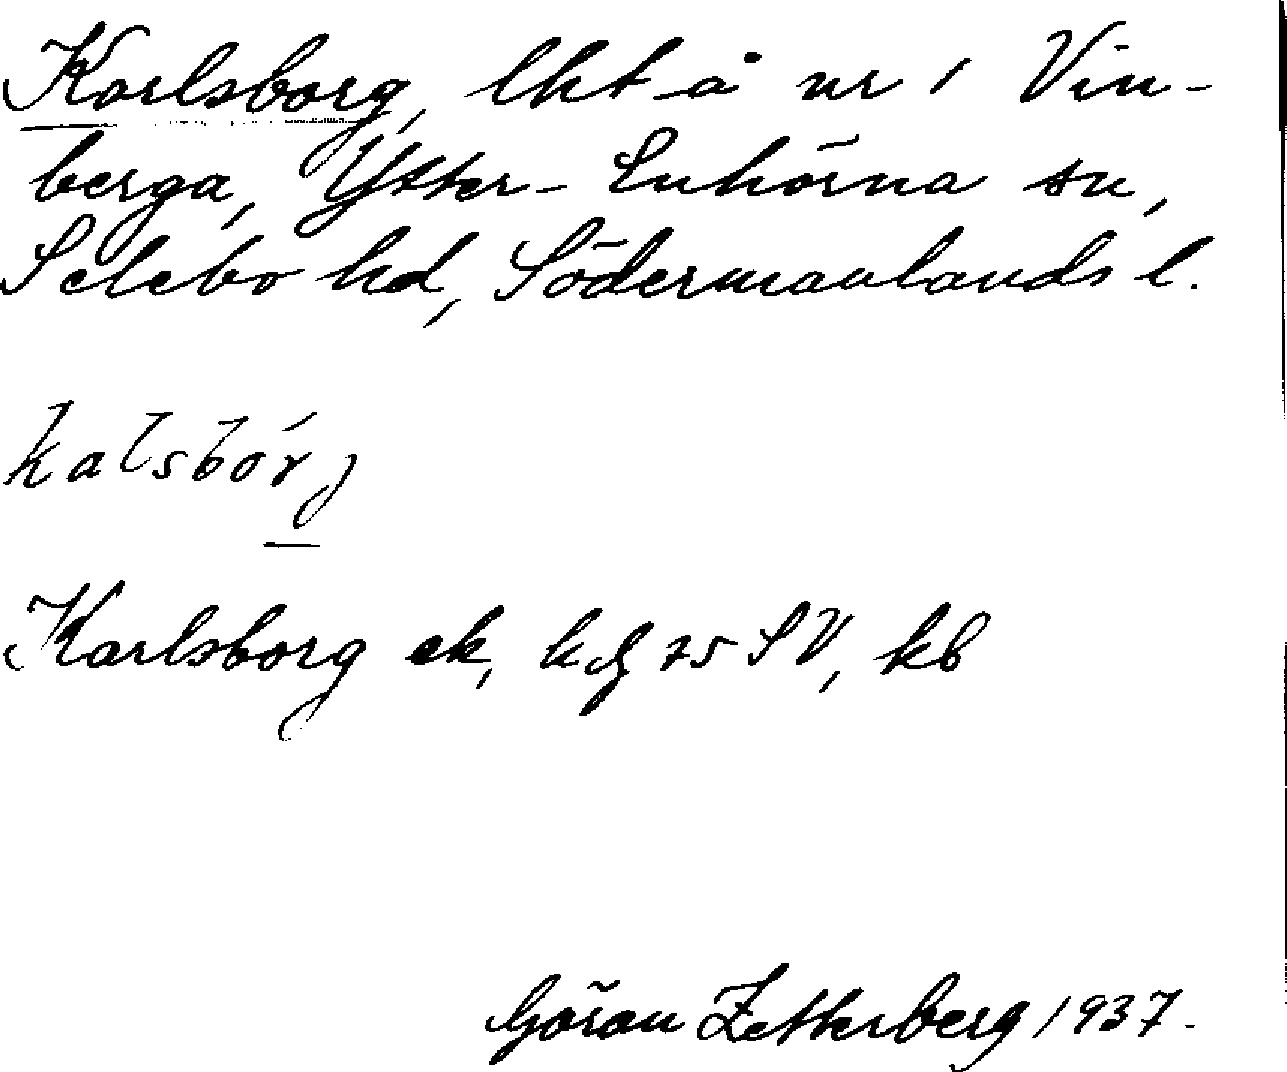 Karlsborg, lht å nr 1 Vin-
berga, Ytter-Enhörna sn,
Selebo hd, Södermanlands l.
kalsbórj
Karlsborg ek, kg 75 SV, kb
Göran Zetterberg 1937.